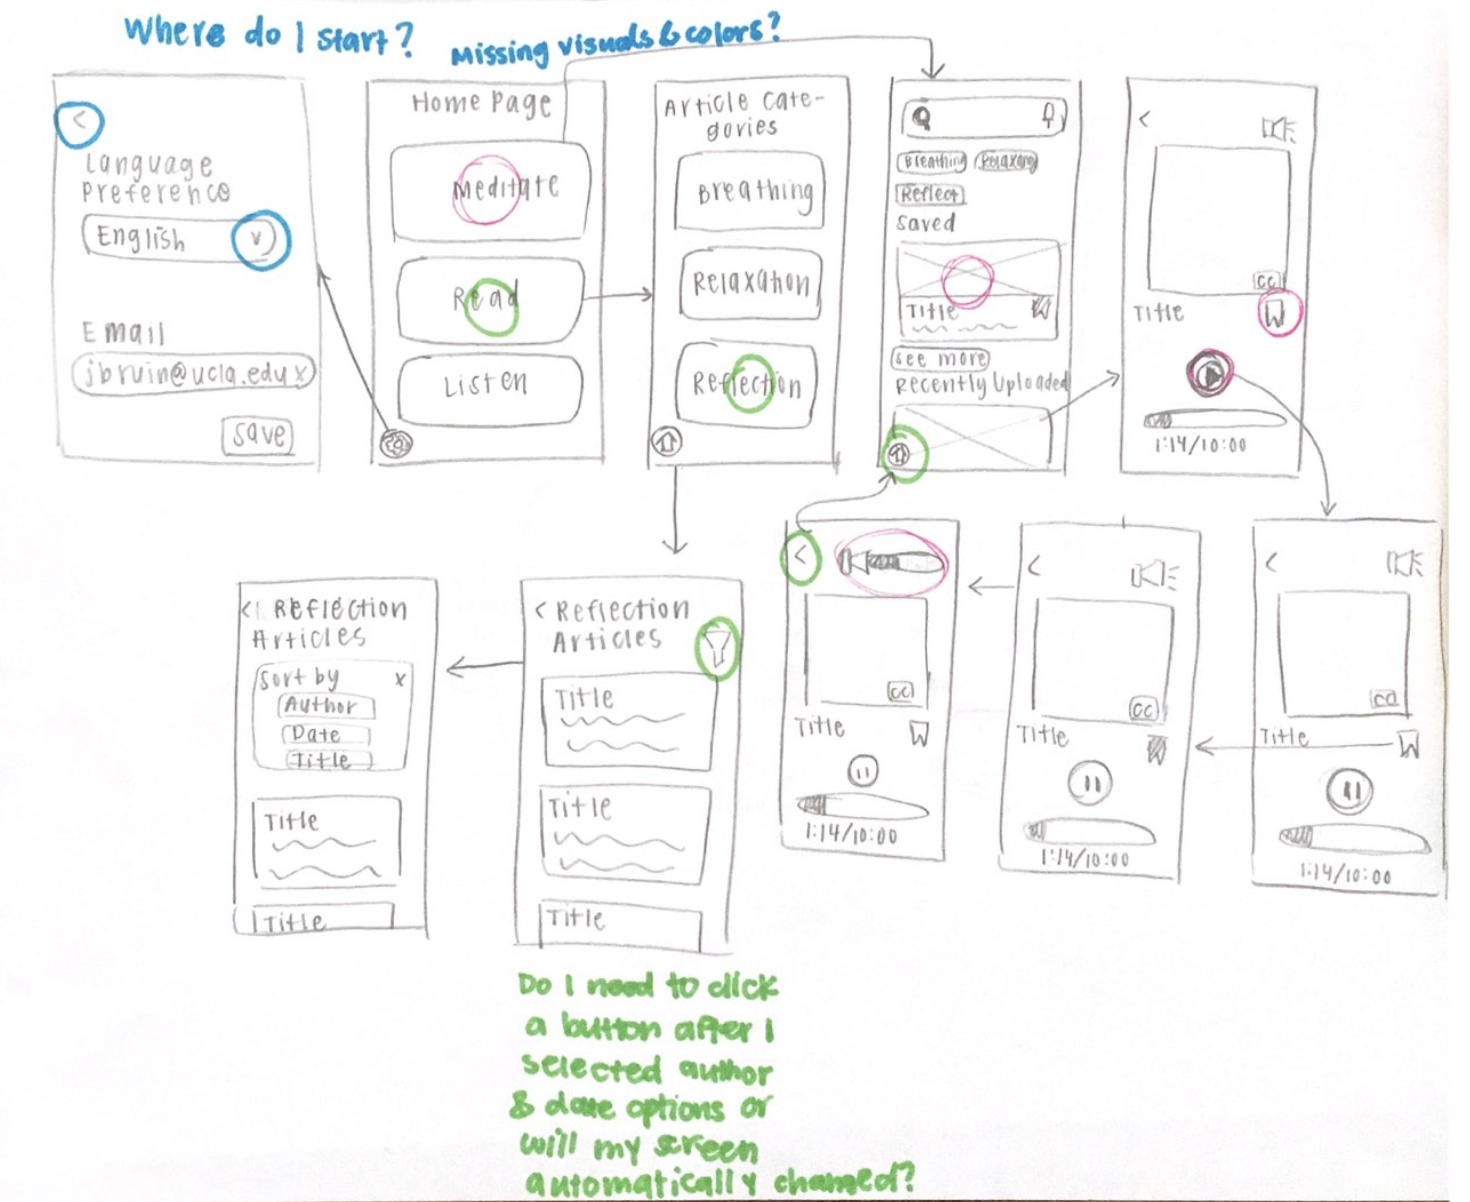 Where do I start?
Missing visuals & colors?
<
Language
preference
English
v
Email
jbruin@ucla.edu x
save
Home Page
Meditate
Read
Listen
Article Cate-
gories
Breathing
Relaxation
Reflection
Breathing
Relaxing
Reflect
saved
Title
see more
Recently Uploaded
<
CC
Title
1:14/10:00
< Reflection
Articles
Sort by x
Author
Date
Title
Title
Title
< Reflection
Articles
Title
Title
Title
<
CC
Title
1:14/10:00
<
CC
Title
1:14/10:00
<
CC
Title
1:14/10:00
Do I need to click
a button after I
selected author
& date options or
will my screen
automatically changed?